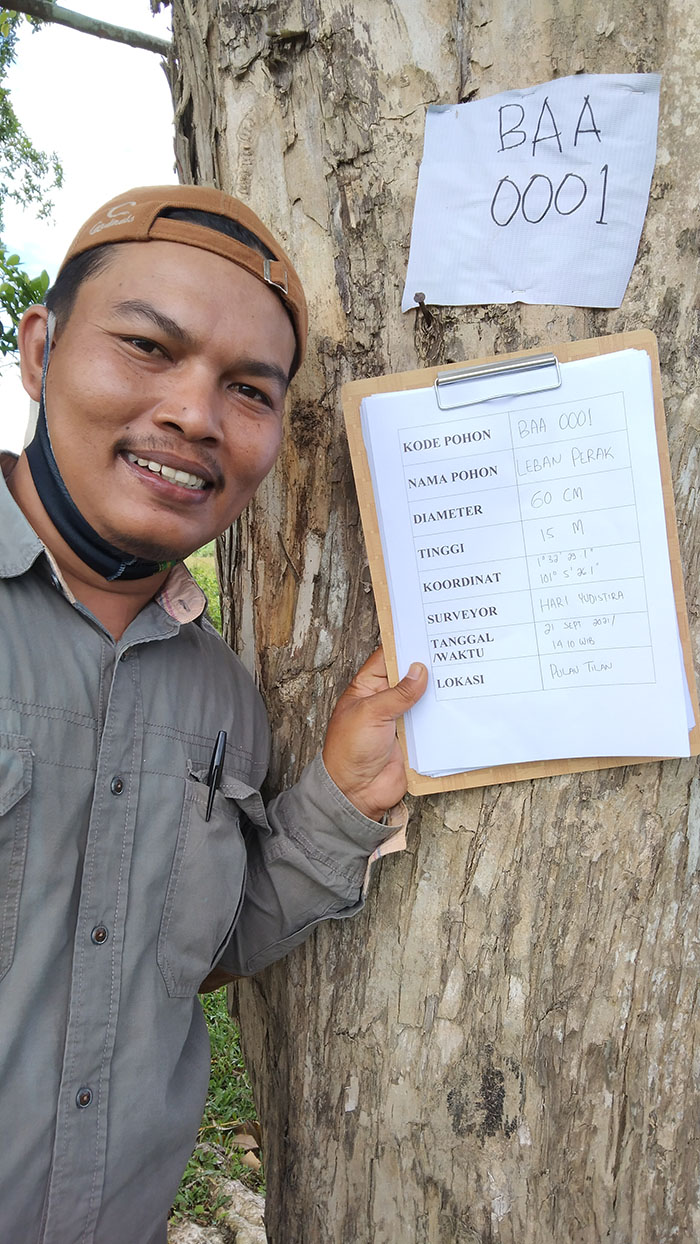 BAA
0001
KODE POHON BAA 0001
NAMA POHON LEBAN PERAK
DIAMETER 60 CM
TINGGI 15 M
KOORDINAT 1° 32' 28.1"
101° 5' 26.1"
SURVEYOR HARI YUDISTIRA
TANGGAL 21 SEPT 2021/
/WAKTU 14.10 WIB
LOKASI PULAU TILAN
C